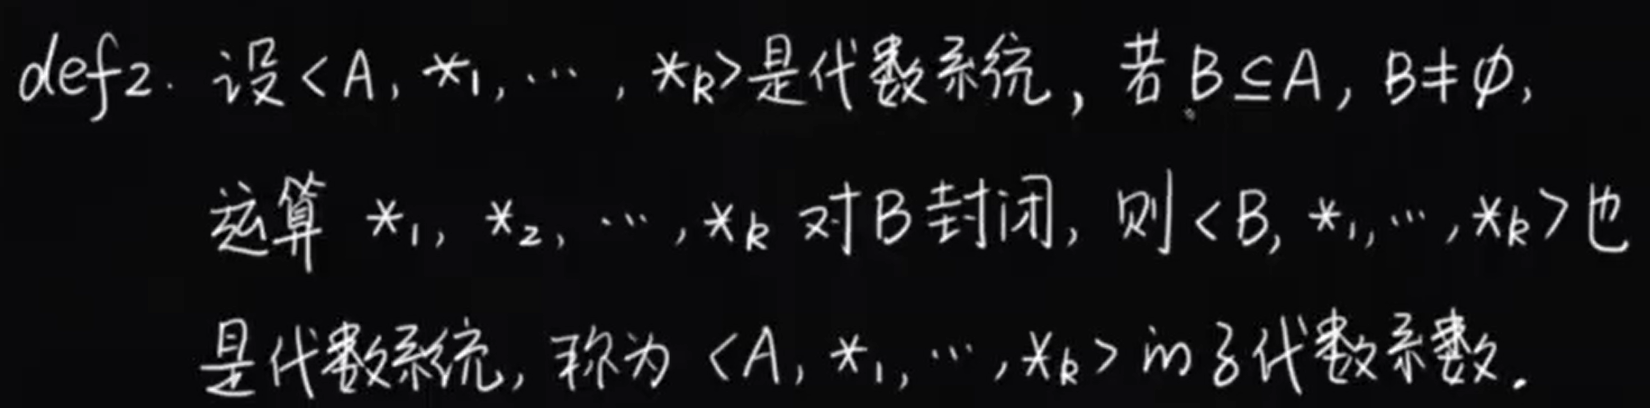 def2. 设<A, *₁, ⋯, *ₖ>是代数系统, 若B⊆A, B≠φ,
运算 *₁, *₂, ⋯, *ₖ 对B封闭, 则<B, *₁, ⋯, *ₖ>也
是代数系统, 称为<A, *₁, ⋯, *ₖ>的子代数系数.